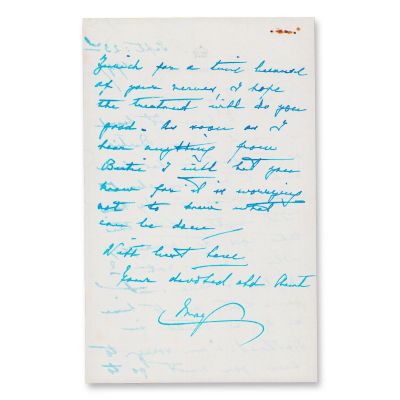 Zurich for a time because
of your nerves, I hope
the treatment will do you
good. As soon as I
hear anything from
Bertie I will let you
know for it is worrying
not to know what
can be done.
With best love
Your devoted old Aunt
May